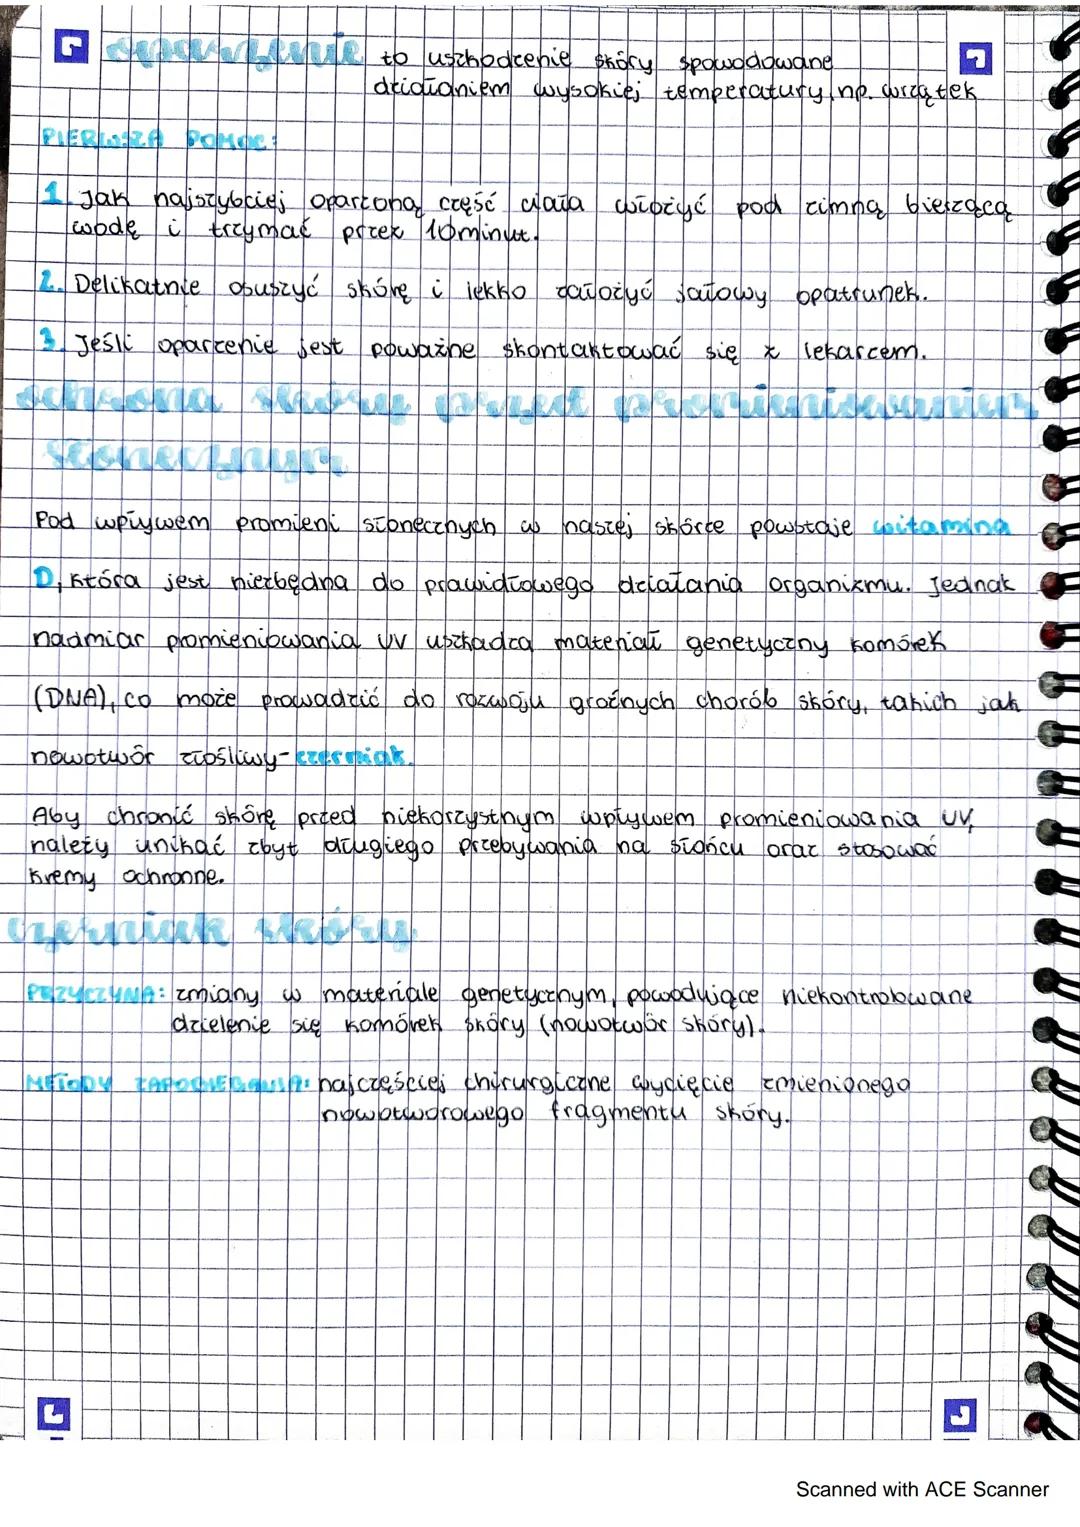 oparzenie to uszkodzenie skóry spowodowane
działaniem wysokiej temperatury, np. wrzątek
PIERWSZA POMOC:
1. Jak najszybciej oparzoną część ciała włożyć pod zimną bieżącą
wodę i trzymać przez 10minut.
2. Delikatnie osuszyć skórę i lekko założyć jałowy opatrunek.
3. Jeśli oparzenie jest poważne skontaktować się z lekarzem.
ochrona skóry przed promieniowaniem
słonecznym
Pod wpływem promieni słonecznych w naszej skórze powstaje witamina
D, która jest niezbędna do prawidłowego działania organizmu. Jednak
nadmiar promieniowania UV uszkadza materiał genetyczny komórek
(DNA), co może prowadzić do rozwoju groźnych chorób skóry, takich jak
nowotwór złośliwy-czerniak.
Aby chronić skórę przed niekorzystnym wpływem promieniowania UV,
należy unikać zbyt długiego przebywania na słońcu oraz stosować
kremy ochronne.
czerniak skóry
PRZYCZYNA: zmiany w materiale genetycznym, powodujące niekontrolowane
dzielenie się komórek skóry (nowotwór skóry).
METODY ZAPOBIEGANIA: najczęściej chirurgiczne wycięcie zmienionego
nowotworowego fragmentu skóry.
Scanned with ACE Scanner